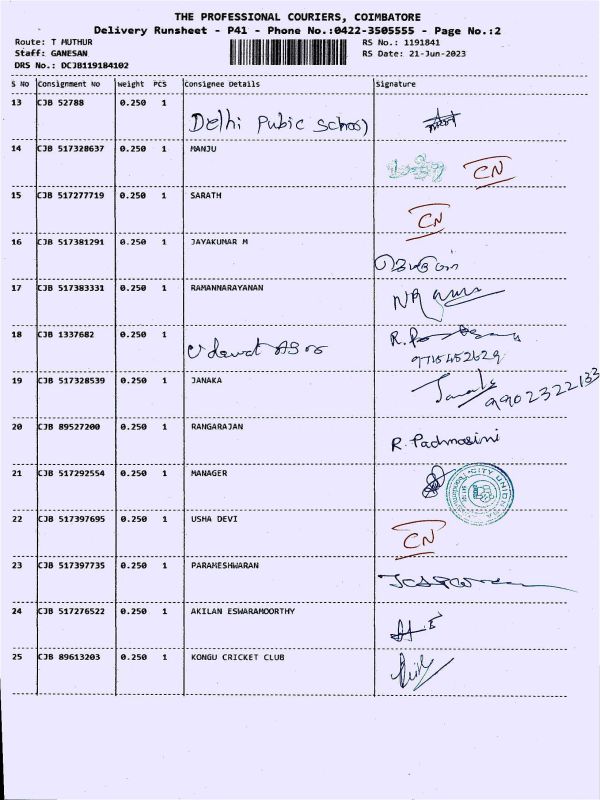 THE PROFESSIONAL COURIERS, COIMBATORE
Delivery Runsheet - P41 - Phone No.:0422-3505555 - Page No.:2
Route: T MUTHUR RS No.: 1191841
Staff: GANESAN RS Date: 21-Jun-2023
DRS No.: DCJB119184102
S No Consignment No Weight PCS Consignee Details Signature
13 CJB 52788 0.250 1
Delhi Pubic School
14 CJB 517328637 0.250 1 MANJU
CN
15 CJB 517277719 0.250 1 SARATH
CN
16 CJB 517381291 0.250 1 JAYAKUMAR M
17 CJB 517383331 0.250 1 RAMANNARAYANAN
18 CJB 1337682 0.250 1
R.
9715452629
19 CJB 517328539 0.250 1 JANAKA
9902322133
20 CJB 89527200 0.250 1 RANGARAJAN
R. Padmasini
21 CJB 517292554 0.250 1 MANAGER
CITY UNION
22 CJB 517397695 0.250 1 USHA DEVI
CN
23 CJB 517397735 0.250 1 PARAMESHWARAN
24 CJB 517276522 0.250 1 AKILAN ESWARAMOORTHY
25 CJB 89613203 0.250 1 KONGU CRICKET CLUB